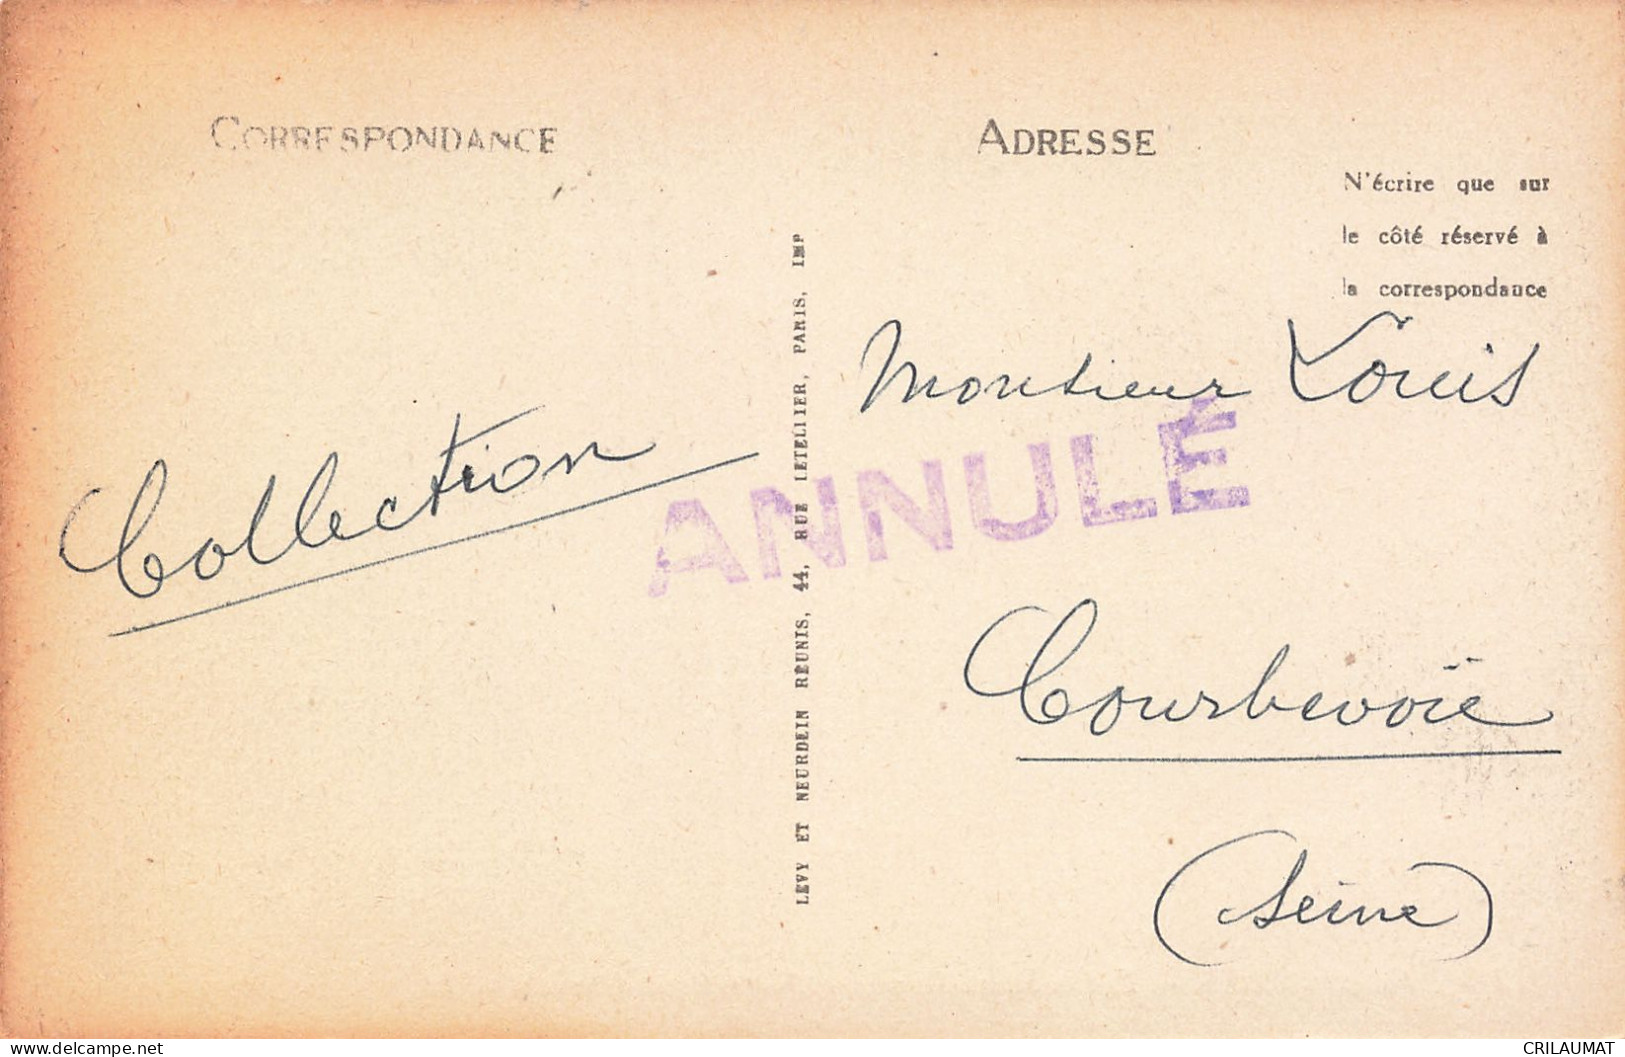 CORRESPONDANCE
ADRESSE
N'écrire que sur
le côté réservé à
la correspondance
LEVY ET NEURDEIN RÉUNIS, 44, RUE LETELIER, PARIS, IMP
Collection
Monsieur Louis
ANNULÉ
Courbevoïe
(Seine)
www.delcampe.net
CRILAUMAT